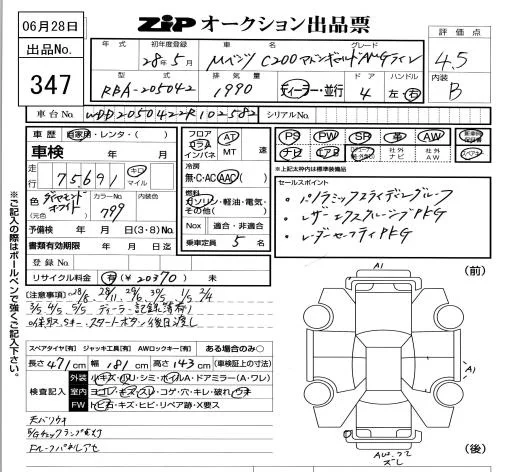 06月28日
ZIP オークション出品票
出品No.
347
年式 初年度登録 車名 グレード
28年5月 Mベンツ C200アバンギャルドAMGライン
型式 排気量 ドア ハンドル
RBA-205042 1990 ディーラー・並行 4 左・右
評価点
4.5
内装
B
車台No. WDD2050422R102582 シリアルNo.
車歴 自家用・レンタ・( )
車検 年 月
走行 75,691 キロ マイル
色 ダイヤモンドホワイト カラーNo. 799 内装色
(元色)
予備検 年 月 日(3・8)No.
書類有効期限 年 月 日迄
登録No.
リサイクル料金 有(¥20370) 未
フロア コラム インパネ AT MT 速
冷房
無・C・AC・AAC( )
燃料
ガソリン・軽油・電気・その他( )
Nox 適合・非適合
乗車定員 5 名
PS PW SR 革 AW 新車時保証書
ナビ エアB 社外ナビ 社外AW スペアキー
※上記太枠内は標準装備品
セールスポイント
・パノラミックスライディングルーフ
・レザーエクスクルーシブPKG
・レーダーセーフティPKG
(注意事項)
ディーラー記録簿有り
スタートボタン後日渡し
スペアタイヤ[有] ジャッキ工具[有] AWロックキー[有] ある場合のみ○
長さ 471cm 幅 181cm 高さ 143cm (車検証上の寸法)
検査記入 外装 小キズ・凹・シミ・ホイルA・ドアミラー(A・ワレ)
室内 ヨゴレ・キズ・スレ・コゲ・穴・キレ・破れ・ウキ
FW トビ石・キズ・ヒビ・リペア跡・X要ス
E/Gチェックランプ点灯
※ご記入の際はボールペンで強くご記入下さい。
(前)
A1
A1
(後)